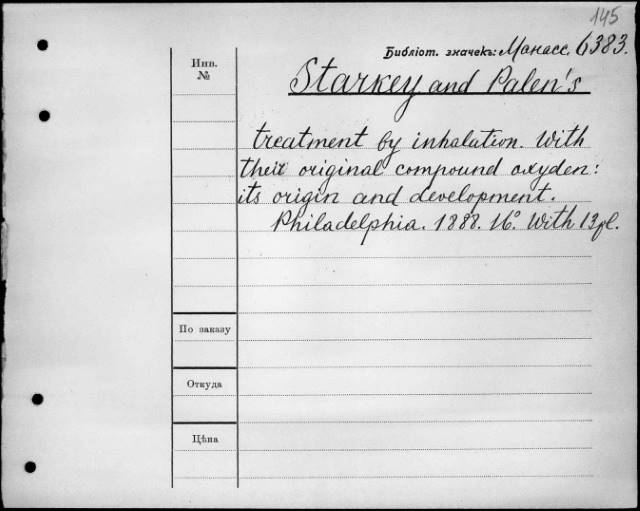 145
Библіот. значекъ: Манасс. 6383.
Инв.
№
Starkey and Palen's
treatment by inhalation. With
their original compound oxyden:
its origin and development.
Philadelphia. 1888. 16°. With 13 pl.
По заказу
Откуда
Цѣна